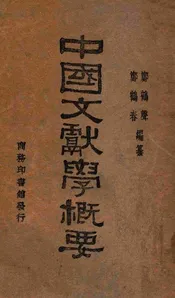 鄭鶴聲
鄭鶴春 編纂
中國文獻學概要
商務印書館發行